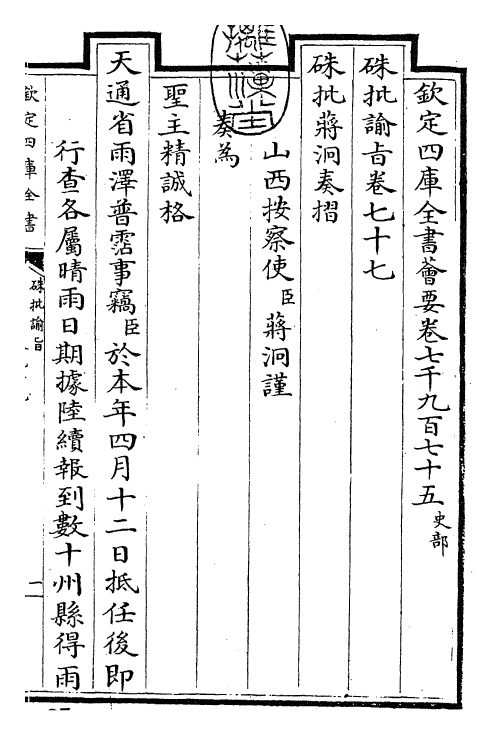 欽定四庫全書薈要卷七千九百七十五史部
硃批諭㫖卷七十七
硃批蔣泂奏摺
山西按察使臣蔣泂謹
奏為
聖主精誠格
天通省雨澤普霑事竊臣於本年四月十二日抵任後即
行查各屬晴雨日期據陸續報到數十州縣得雨
欽定四庫全書
硃批諭㫖